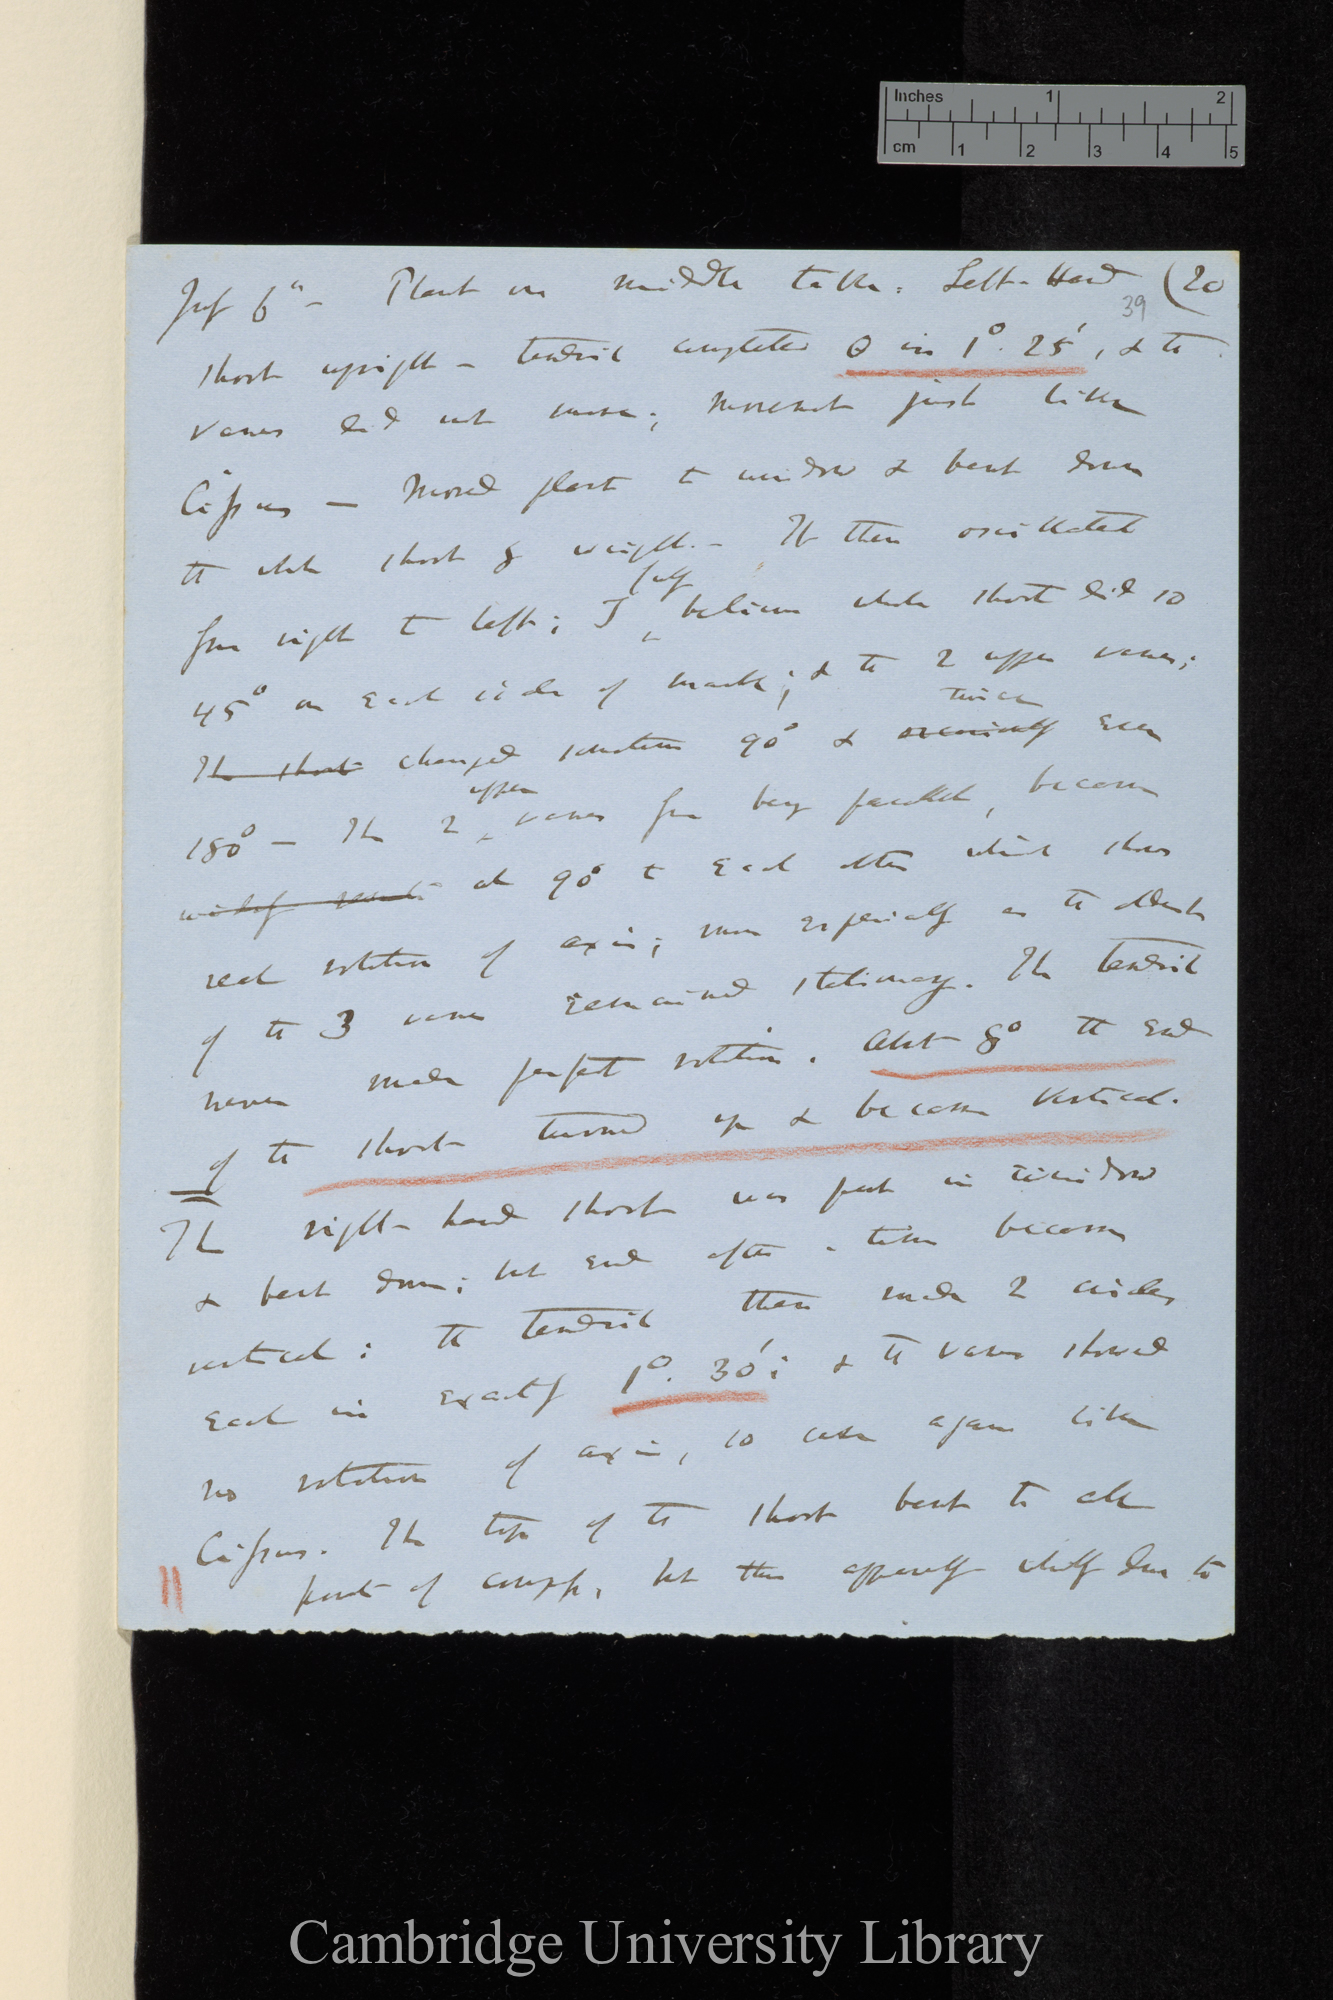 Inches 1 2
cm 1 2 3 4 5
July 6th — Plant on middle table. Left-Hand (20
39
shoot upright — tendril completed O in 1°. 25', & the
vanes did not move; movement just like
Cissus — Moved plant to window & bent down
the whole shoot & weight. — It then oscillated
from right to left; I fully believe whole shoot did so
45° on each side of mark; & the 2 upper vanes;
The shoot changed situation 90° & occasionally twice even
180° — The 2 upper vanes from being parallel, became
at 90° to each other which shows
real rotation of axis; more especially as the oldest
of the 3 vanes remained stationary. The tendril
never made perfect rotation. About 8° the end
of the shoot turned up & became vertical.
The right-hand shoot was put in window
& bent down; but end after a time became
vertical: the tendril then made 2 circles
each in exactly 1°. 30'; & the vanes showed
no rotation of axis, so case again like
Cissus. The top of the shoot bent to all
points of compass, but this apparently wholly due to
Cambridge University Library